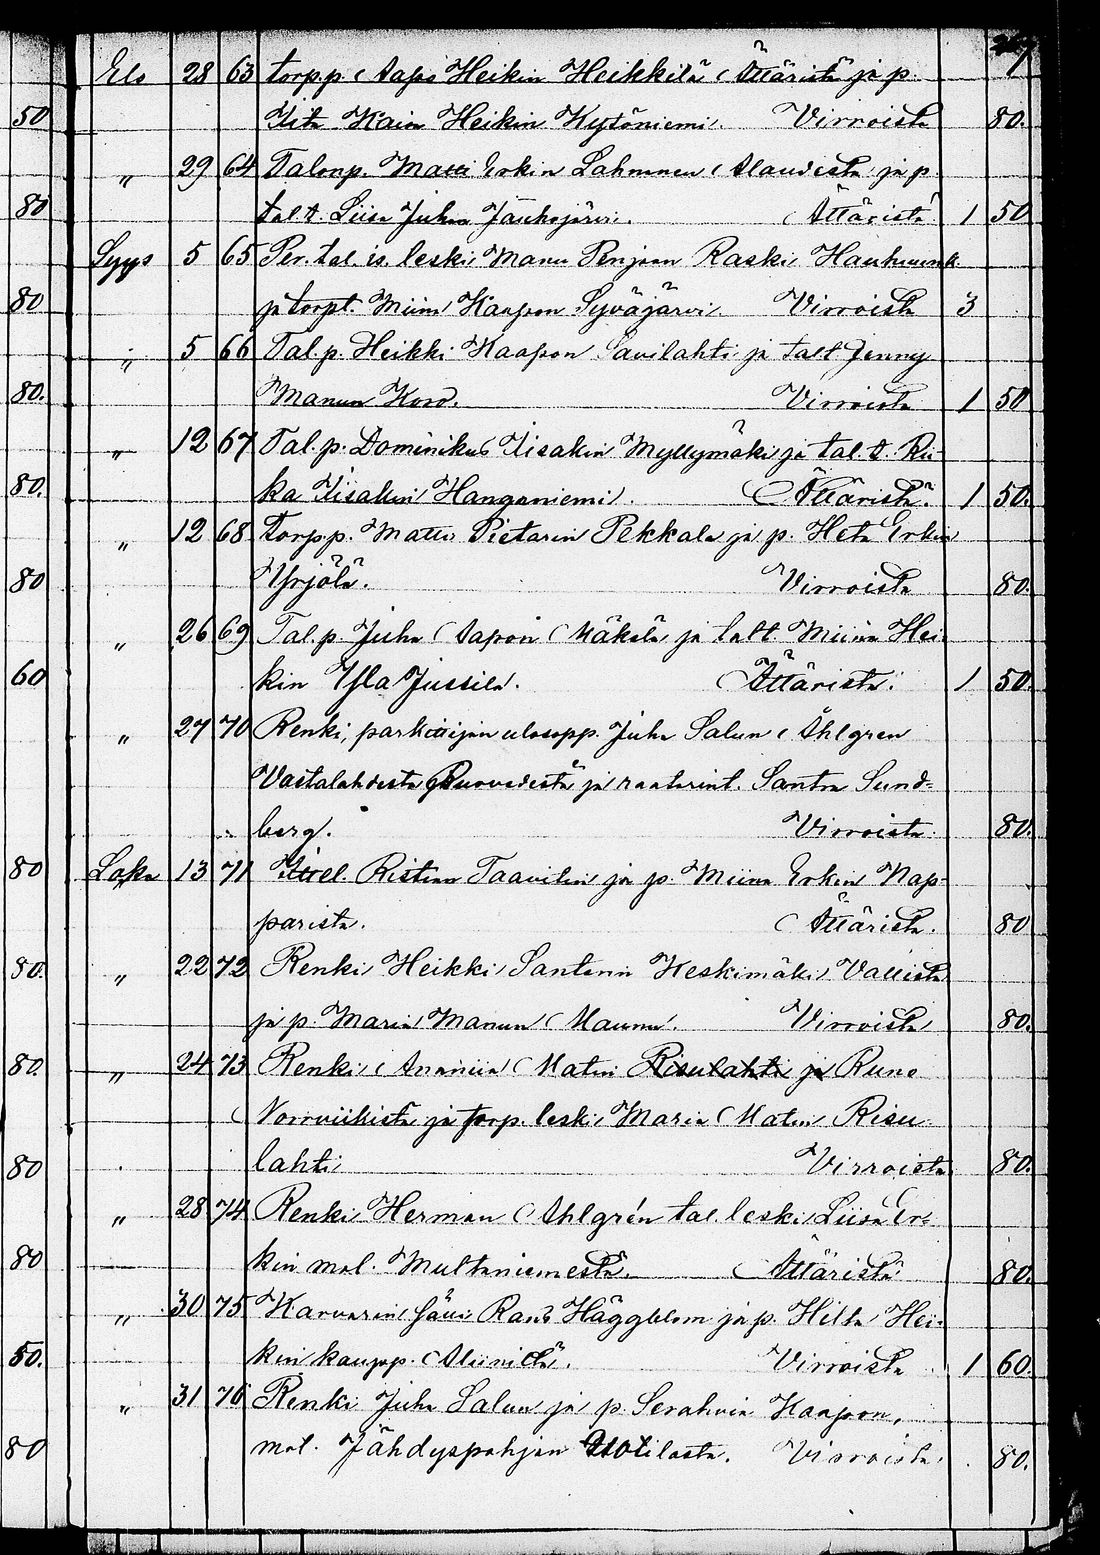 Elo 28 63 torp.p. Aapo Heikin Heikkilä Ättäristä ja p.
50 Iita Kaisa Heikin Kytöniemi. Virroista 80.
" 29 64 Talonp. Matti Erkin Lahnanen Alaudesta ja p.
80 tal.t. Liisa Juhan Jäähojärvi. Ättäristä 1 50
Syys 5 65 Per. tal. is. leski Manu Penjam Raski Hauhuunk.
80 ja torpt. Miina Kaapon Syväjärvi Virroista 3
" 5 66 Tal.p. Heikki Kaapon Savilahti ja talt Jenny
80. Manun Kord. Virroista 1 50
" 12 67 Tal.p. Dominikus Iisakin Myllymäki ja tal.t. Rii-
80. ka Iisakin Hanganiemi. Ättäristä. 1 50.
" 12 68 torpp. Matti Pietarin Pekkala ja p. Heta Erkin
80 Yrjölä. Virroista 80.
" 26 69 Tal.p. Juha Aapon Mäkelä ja talt. Miina Hei-
60 kin Yla Jussila. Ättäristä. 1 50.
" 27 70 Renki, parkitsijan ulosopp. Juha Salun Åhlgren
Vastalahdesta Ruovedestä ja raatarint. Santra Sund-
berg. Virroista 80.
80 Loka 13 71 Itsel. Ristian Taavitin ja p. Miina Erkin Nap-
parista. Ättäristä. 80
80. " 22 72 Renki Heikki Santerin Keskimäki Vallista
ja p. Maria Manun Maunu. Virroista 80.
80. " 24 73 Renki Ananiia Matin Risulahti ja Rune
Norrviikistä ja torp. leski Maria Matin Risu-
80 lahti Virroista 80.
" 28 74 Renki Herman Ahlgrén tal. leski Liisa Er-
80 kin mal. Multaniemestä. Ättäristä 80.
" 30 75 Karvarin Rans Häggblom ja p. Hilta Hei-
50. kin kaupp. Virroista 1 60.
" 31 76 Renki Juha Salun ja p. Serahvia Kaapon,
80 mal. Jähdyspohjan Uotilasta. Virroista. 80.